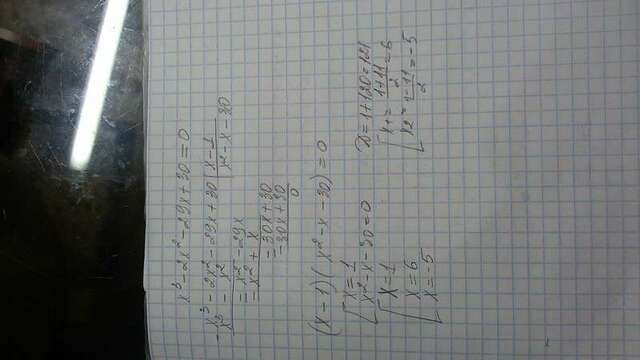 x³ - 2x² - 29x + 30 = 0
- x³ - 2x² - 29x + 30 | x - 1
x³ - x² | x² - x - 30
- x² - 29x
- x² + x
- 30x + 30
- 30x + 30
0
(x - 1)(x² - x - 30) = 0
[ x = 1
x² - x - 30 = 0
D = 1 + 120 = 121
[ x = 1
x = 6
x = -5
[ x₁ = (1 + 11)/2 = 6
x₂ = (1 - 11)/2 = -5